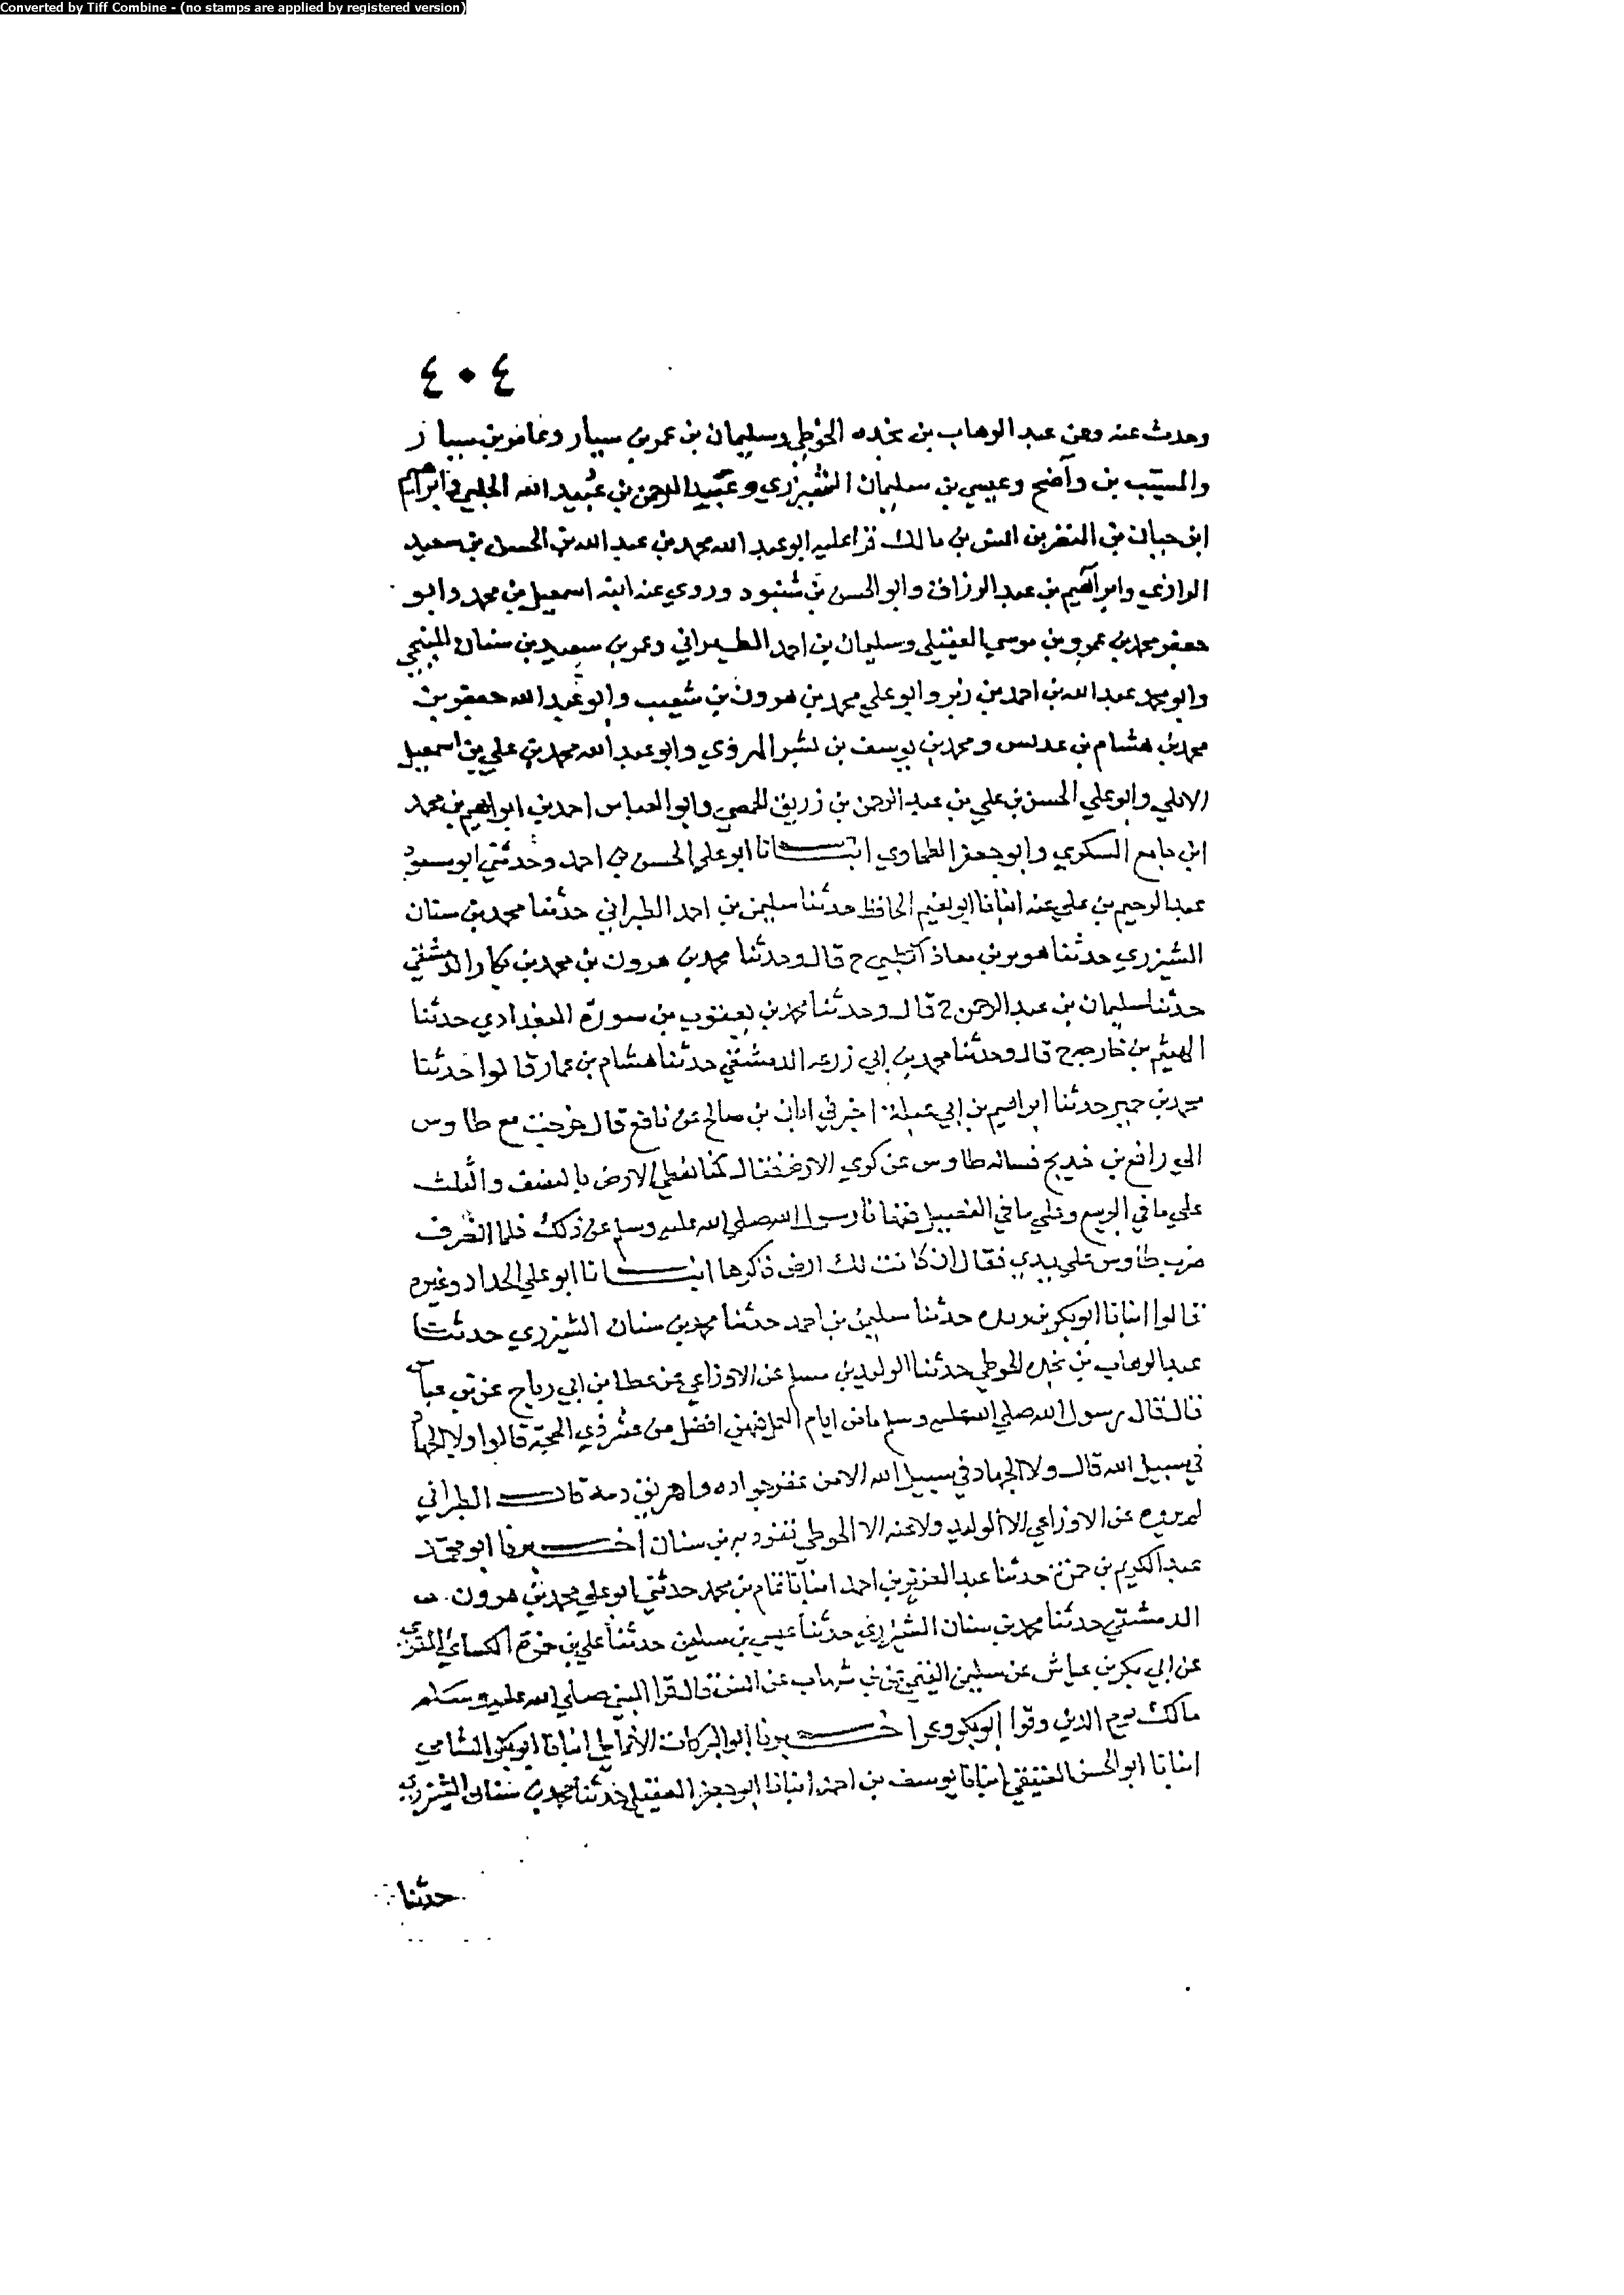 Converted by Tiff Combine - (no stamps are applied by registered version)
٤٠٤
وحدث عنه وعن عبد الوهاب بن نجده الحوطي وسليمان بن عمر بن سيار وعامر بن سيار
والمسيب بن واضح وعيسي بن سليمان الشيزري وعبيد الرحمن بن عبيد الله الحلبي وابراهيم
ابن حبان بن النضر بن انس بن مالك قرا عليه ابو عبد الله محمد بن عبد الله بن الحسن بن سعيد
الرازي وابراهيم بن عبد الرزاق وابو الحسن بن شنبود وروي عنه ابنه اسمعيل بن محمد وابو
جعفر محمد بن عمرو بن موسي العقيلي وسليمان بن احمد الطبراني وعمر بن سعيد بن سنان المنبجي
وابو محمد عبد الله بن احمد بن زبر وابو علي محمد بن هرون بن شعيب وابو عبد الله جعفر بن
محمد بن هشام بن عدبس ومحمد بن يوسف بن بشر الهروي وابو عبد الله محمد بن علي بن اسمعيل
الايلي وابو علي الحسن بن علي بن عبد الرحمن بن زريق الحمصي وابو العباس احمد بن ابراهيم بن محمد
ابن جامع السكري وابو جعفر الطحاوي انبانا ابو علي الحسن بن احمد وحدثني ابو مسعود
عبد الرحيم بن علي عنه انبانا ابو نعيم الحافظ حدثنا سليمن بن احمد الطبراني حدثنا محمد بن سنان
الشيزري حدثنا هوبر بن معاذ الكلبي ح قال وحدثنا محمد بن هرون بن محمد بن بكار الدمشقي
حدثنا سليمان بن عبد الرحمن ح قال وحدثنا محمد بن يعقوب بن سورة البغدادي حدثنا
الهيثم بن خارجه ح قال وحدثنا محمد بن ابي زرعه الدمشقي حدثنا هشام بن عمار قالوا حدثنا
محمد بن حمير حدثنا ابراهيم بن ابي عبلة اخبرني ابان بن صالح عن نافع قال خرجت مع طاوس
الي رافع بن خديج فساله طاوس عن كري الارض فقال كنا نعطي الارض بالنصف والثلث
علي ما في الربيع وعلي ما في القصيل فنهانا رسول الله صلي الله عليه وسلم عن ذلك فلما انصرف
ضرب طاوس علي يدي فقال ان كانت لك ارض فاكرها انبانا ابو علي الحداد وغيره
قالوا انبانا ابو بكر بن ريده حدثنا سليمن بن احمد حدثنا محمد بن سنان الشيزري حدثنا
عبد الوهاب بن نجده الحوطي حدثنا الوليد بن مسلم عن الاوزاعي عن عطا بن ابي رباح عن بن عباس
قال قال رسول الله صلي الله عليه وسلم ما من ايام العمل فيهن افضل من عشر ذي الحجة قالوا ولا الجهاد
في سبيل الله قال ولا الجهاد في سبيل الله الا من عقر جواده واهريق دمه قال الطبراني
لم يروه عن الاوزاعي الا الوليد ولا عنه الا الحوطي تفرد به بن سنان اخبرنا ابو محمد
عبد الكريم بن حمزة حدثنا عبد العزيز بن احمد انبانا تمام بن محمد حدثني ابو علي محمد بن هرون
الدمشقي حدثنا محمد بن سنان الشيزري حدثنا عيسي بن سليمن حدثنا علي بن حمزة الكسائي المقري
عن ابي بكر بن عياش عن سليمن التيمي عن بن شهاب عن انس قال قرا النبي صلي الله عليه وسلم
مالك يوم الدين وقرا ابو بكر وعمر اخبرنا ابو البركات الانماطي انبانا ابو بكر الشامي
انبانا ابو الحسن العتيقي انبانا يوسف بن احمد انبانا ابو جعفر العقيلي حدثنا محمد بن سنان الشيزري
حدثنا